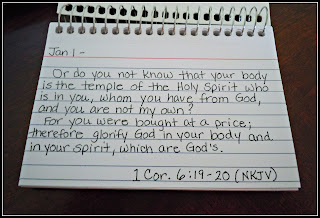 Jan 1 -
Or do you not know that your body
is the temple of the Holy Spirit who
is in you, whom you have from God,
and you are not my own?
For you were bought at a price;
therefore glorify God in your body and
in your spirit, which are God's.
1 Cor. 6:19-20 (NKJV)